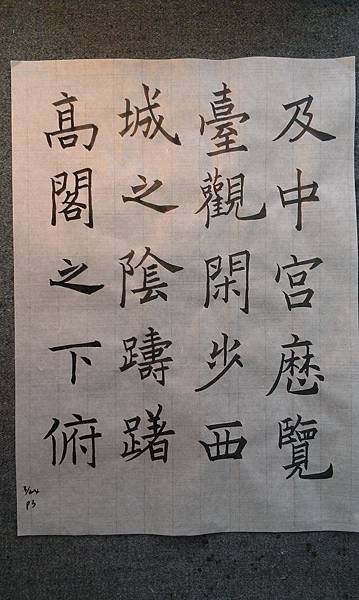 及中宮歷覽
臺觀閑步西
城之陰躊躇
高閣之下俯
3/24
P3